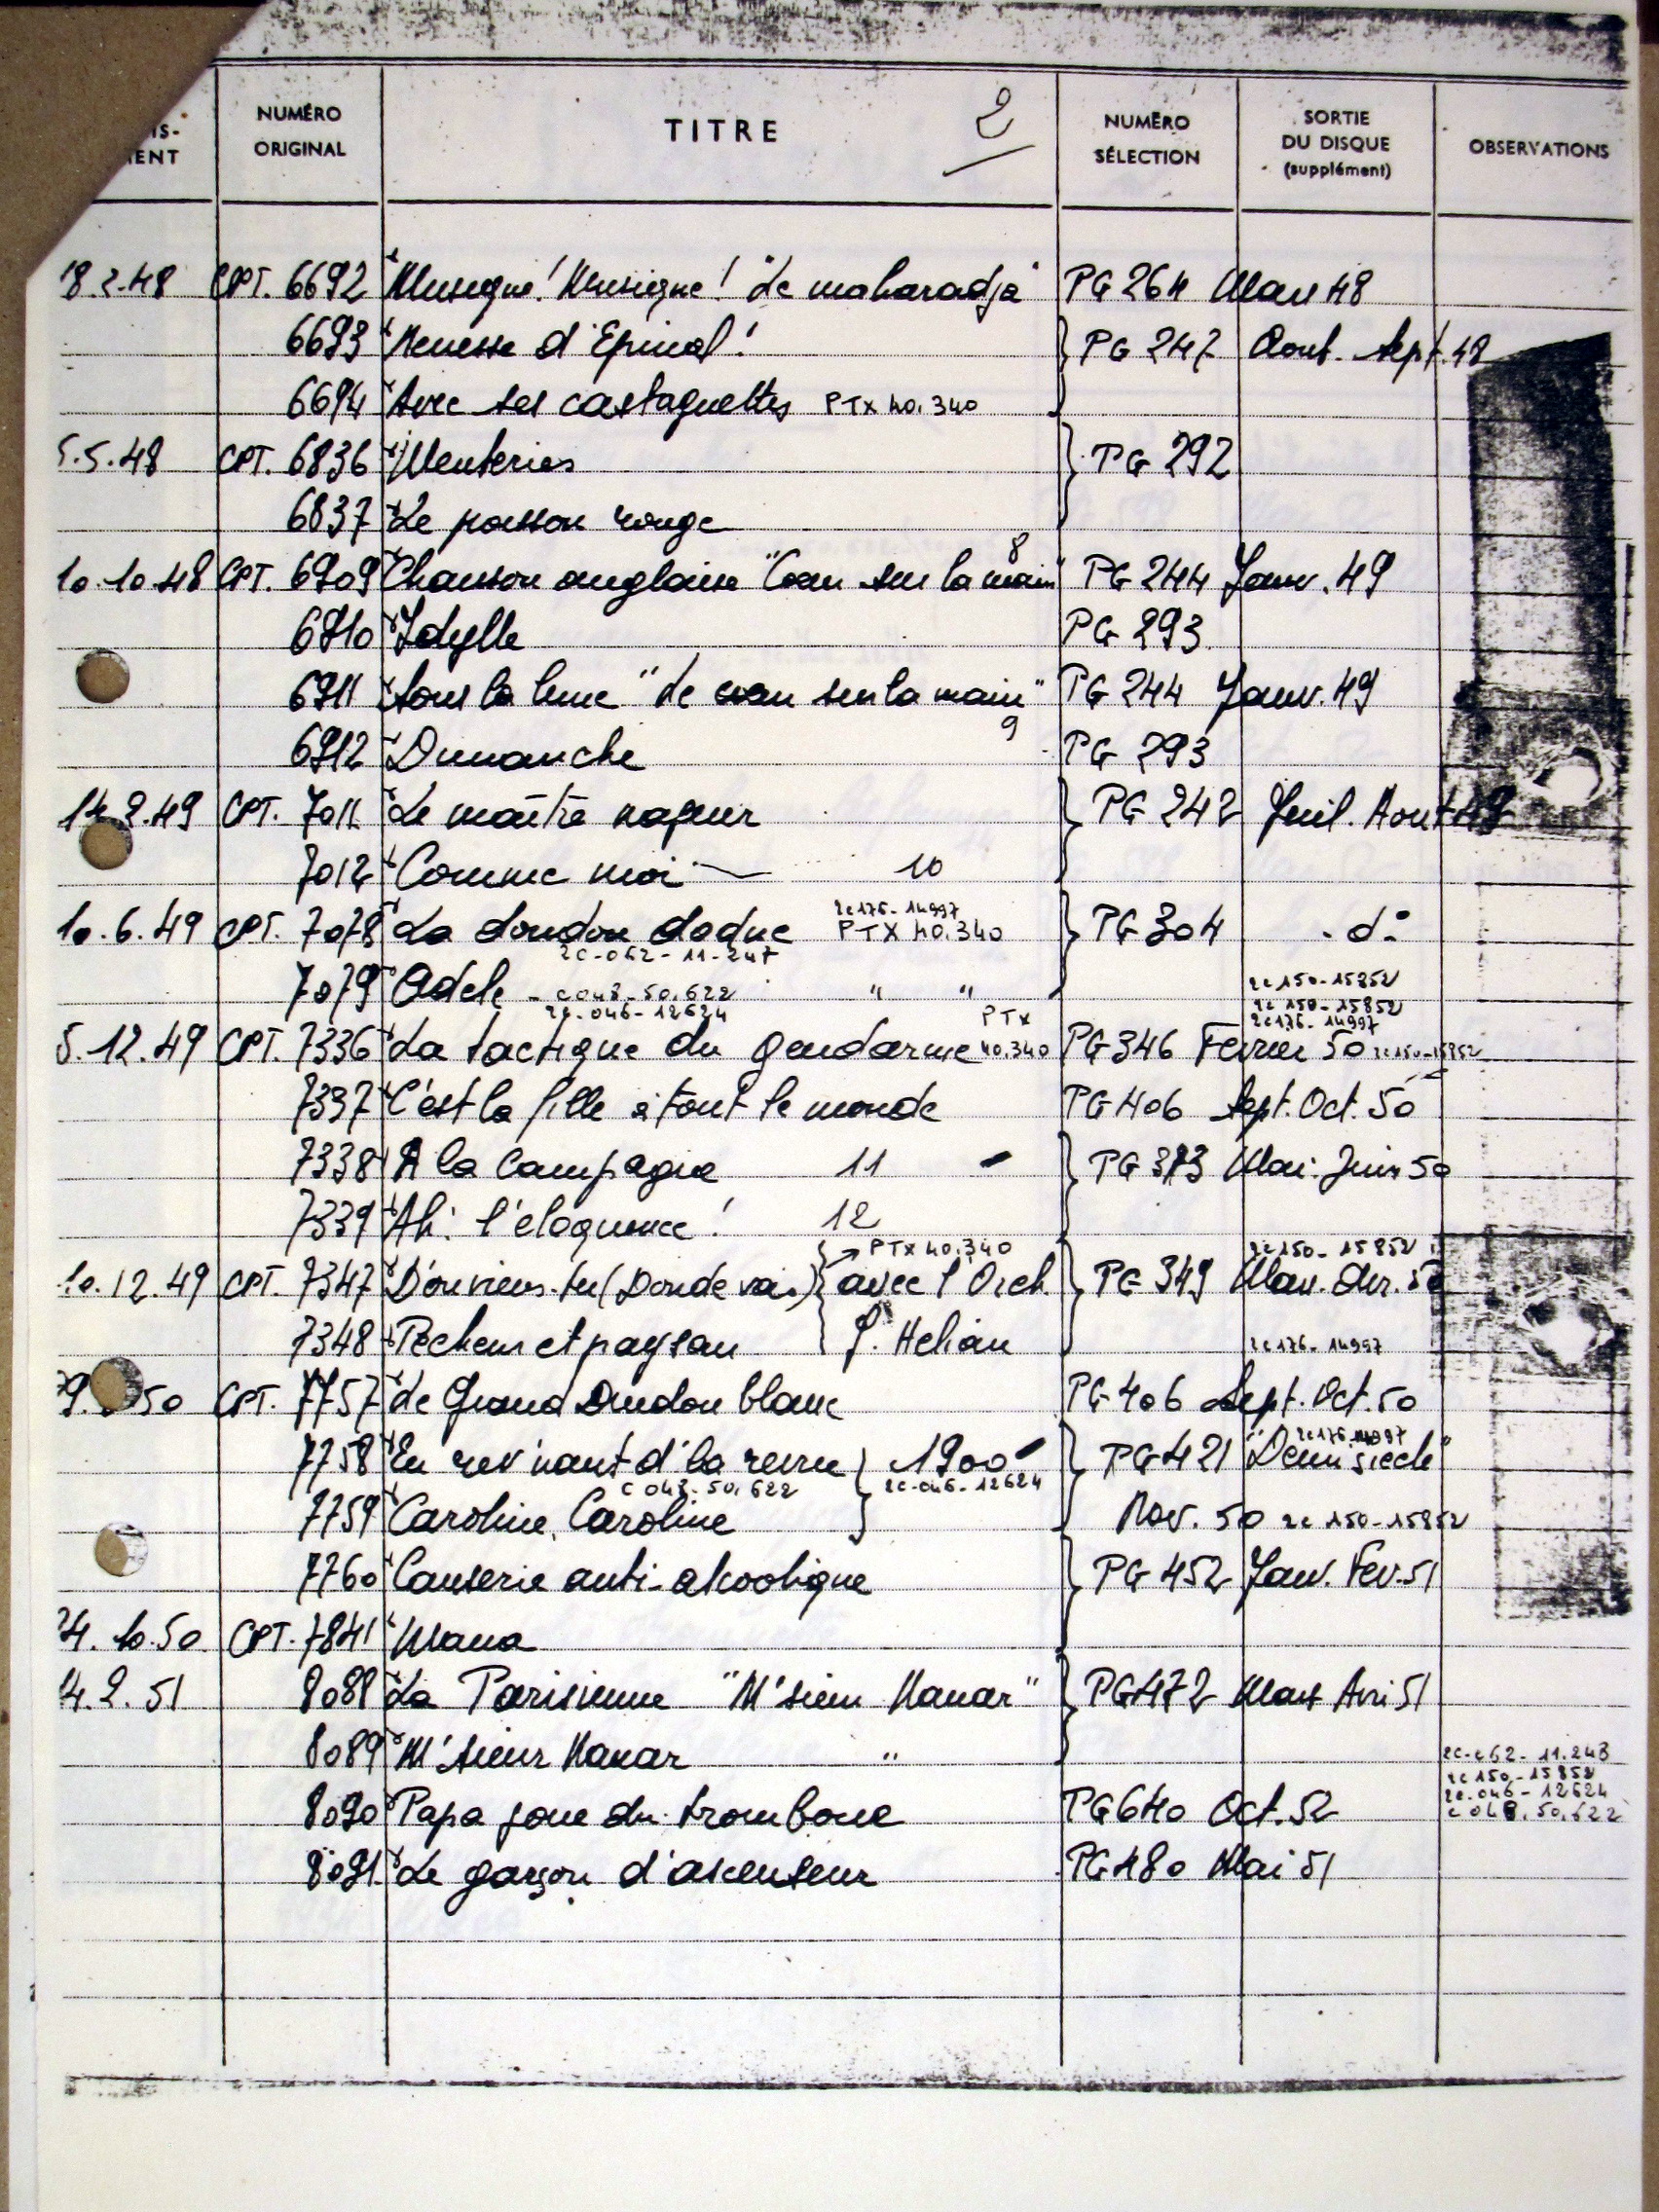 IS-
MENT
NUMÉRO
ORIGINAL
TITRE
2
NUMÉRO
SÉLECTION
SORTIE
DU DISQUE
(supplément)
OBSERVATIONS
18.2.48 CPT. 6692 Musique! Musique! "Le maharadja" PG 264 Mars 48
6693 d'Epinal! PG 247 Aout. Sept. 48
6694 Avec ses castagnettes PTX 40.340
5.5.48 CPT. 6836 Menteries PG 292
6837 Le poisson rouge
8
10.10.48 CPT. 6909 Chanson anglaise "Coeur sur la main" PG 244 Janv. 49
6910 Idylle PG 293
6911 Sous la lune "Le coeur sur la main" PG 244 Janv. 49
9
6912 Dimanche PG 293
14.2.49 CPT. 7011 Le maître nageur PG 242 Juil. Aout 49
7012 Comme moi 10
2c176-14997
10.6.49 CPT. 7078 La dondon dodue PTX 40.340 PG 304 - do -
2C-062-11-247
7079 Adele - C048-50.622 " " 2c150-15852
2c-046-12624 PTX 2c150-15852
2c176-14997
5.12.49 CPT. 7336 La tactique du gendarme 40.340 PG 346 Fevrier 50 2c150-15852
7337 C'est la fille à tout le monde PG 406 Sept. Oct. 50
7338 A la campagne 11 - PG 373 Mai. Juin 50
7339 Ah! l'éloquence! 12
PTX 40.340 2c150-15852
10.12.49 CPT. 7347 D'ou viens-tu (Donde vai.) avec l'Orch. PG 349 Mar. Avr. 50
7348 Pecheur et paysan J. Helian 2c176-14997
50 CPT. 7757 Le Grand Dindon blanc PG 406 Sept. Oct. 50
2c176-14997
7758 En rev'nant d'la revue 1900 PG 421 "Demi siecle"
C 048-50.622 2C-046-12624
7759 Caroline, Caroline Nov. 50 2c 150-15852
7760 Causerie anti-alcoolique PG 452 Janv. Fev. 51
24.10.50 CPT. 7841 Mana
14.2.51 8088 La Parisienne "M'sieur Nanar" PG 472 Mars Avri 51
8089 M'sieur Nanar "
2C-062-11.243
2c150-15852
2c-046-12624
C 048.50.622
8090 Papa joue du trombone PG 640 Oct. 52
8091 Le garçon d'ascenseur PG 480 Mai 51